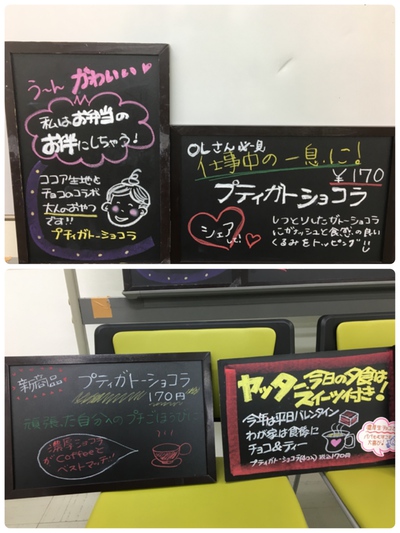 う〜ん かわいい
私はお弁当の
お伴にしちゃう!
ココア生地と
チョコのコラボ
大人のおやつ
です!!
プティガトーショコラ
OLさん必見
仕事中の一息に!
¥170
プティガトーショコラ
シェアして!
しっとりしたガトーショコラ
にガナッシュと食感の良い
くるみをトッピング!!
新商品
プティガトーショコラ
170円
頑張った自分へのプチごほうびに
濃厚ショコラ
がCoffeeと
ベストマッチ!
ヤッター今日の夕食は
スイーツ付き!
今年は平日バレンタイン
わが家は食後に
チョコ&ティー
プティガトーショコラ
170円